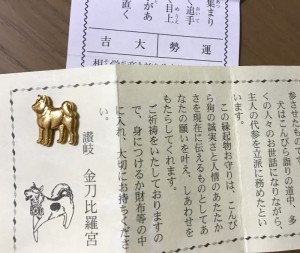 集まり
く追手
目上
があ
直く
吉大　勢運
参させたものです。
犬はこんぴら詣りの道中、多
くの人々のお世話になりながら、
主人の代参を立派に務めたとい
います。
この縁起物お守りは、こんぴ
ら狗の誠実さと人情のあたたか
さを現在に伝えるものとしてあ
なたの願いを叶え、しあわせを
もたらしてくれます。
ご祈祷をいたしておりますの
で、身につけるか財布等の中
に入れ、大切にお持ちくださ
い。
讃岐　金刀比羅宮